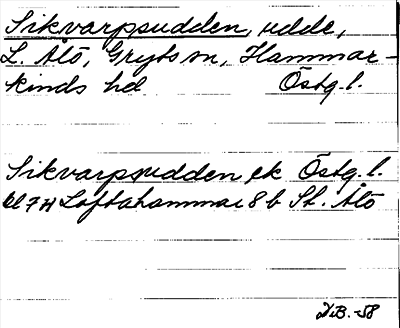 Sikvarpsudden, udde,
L. Ålö, Gryts sn, Hammar-
kinds hd Östg. l.
Sikvarpsudden, ek Östg. l.
bl 7 H Loftahammar 8 b St. Ålö
N.B. -58